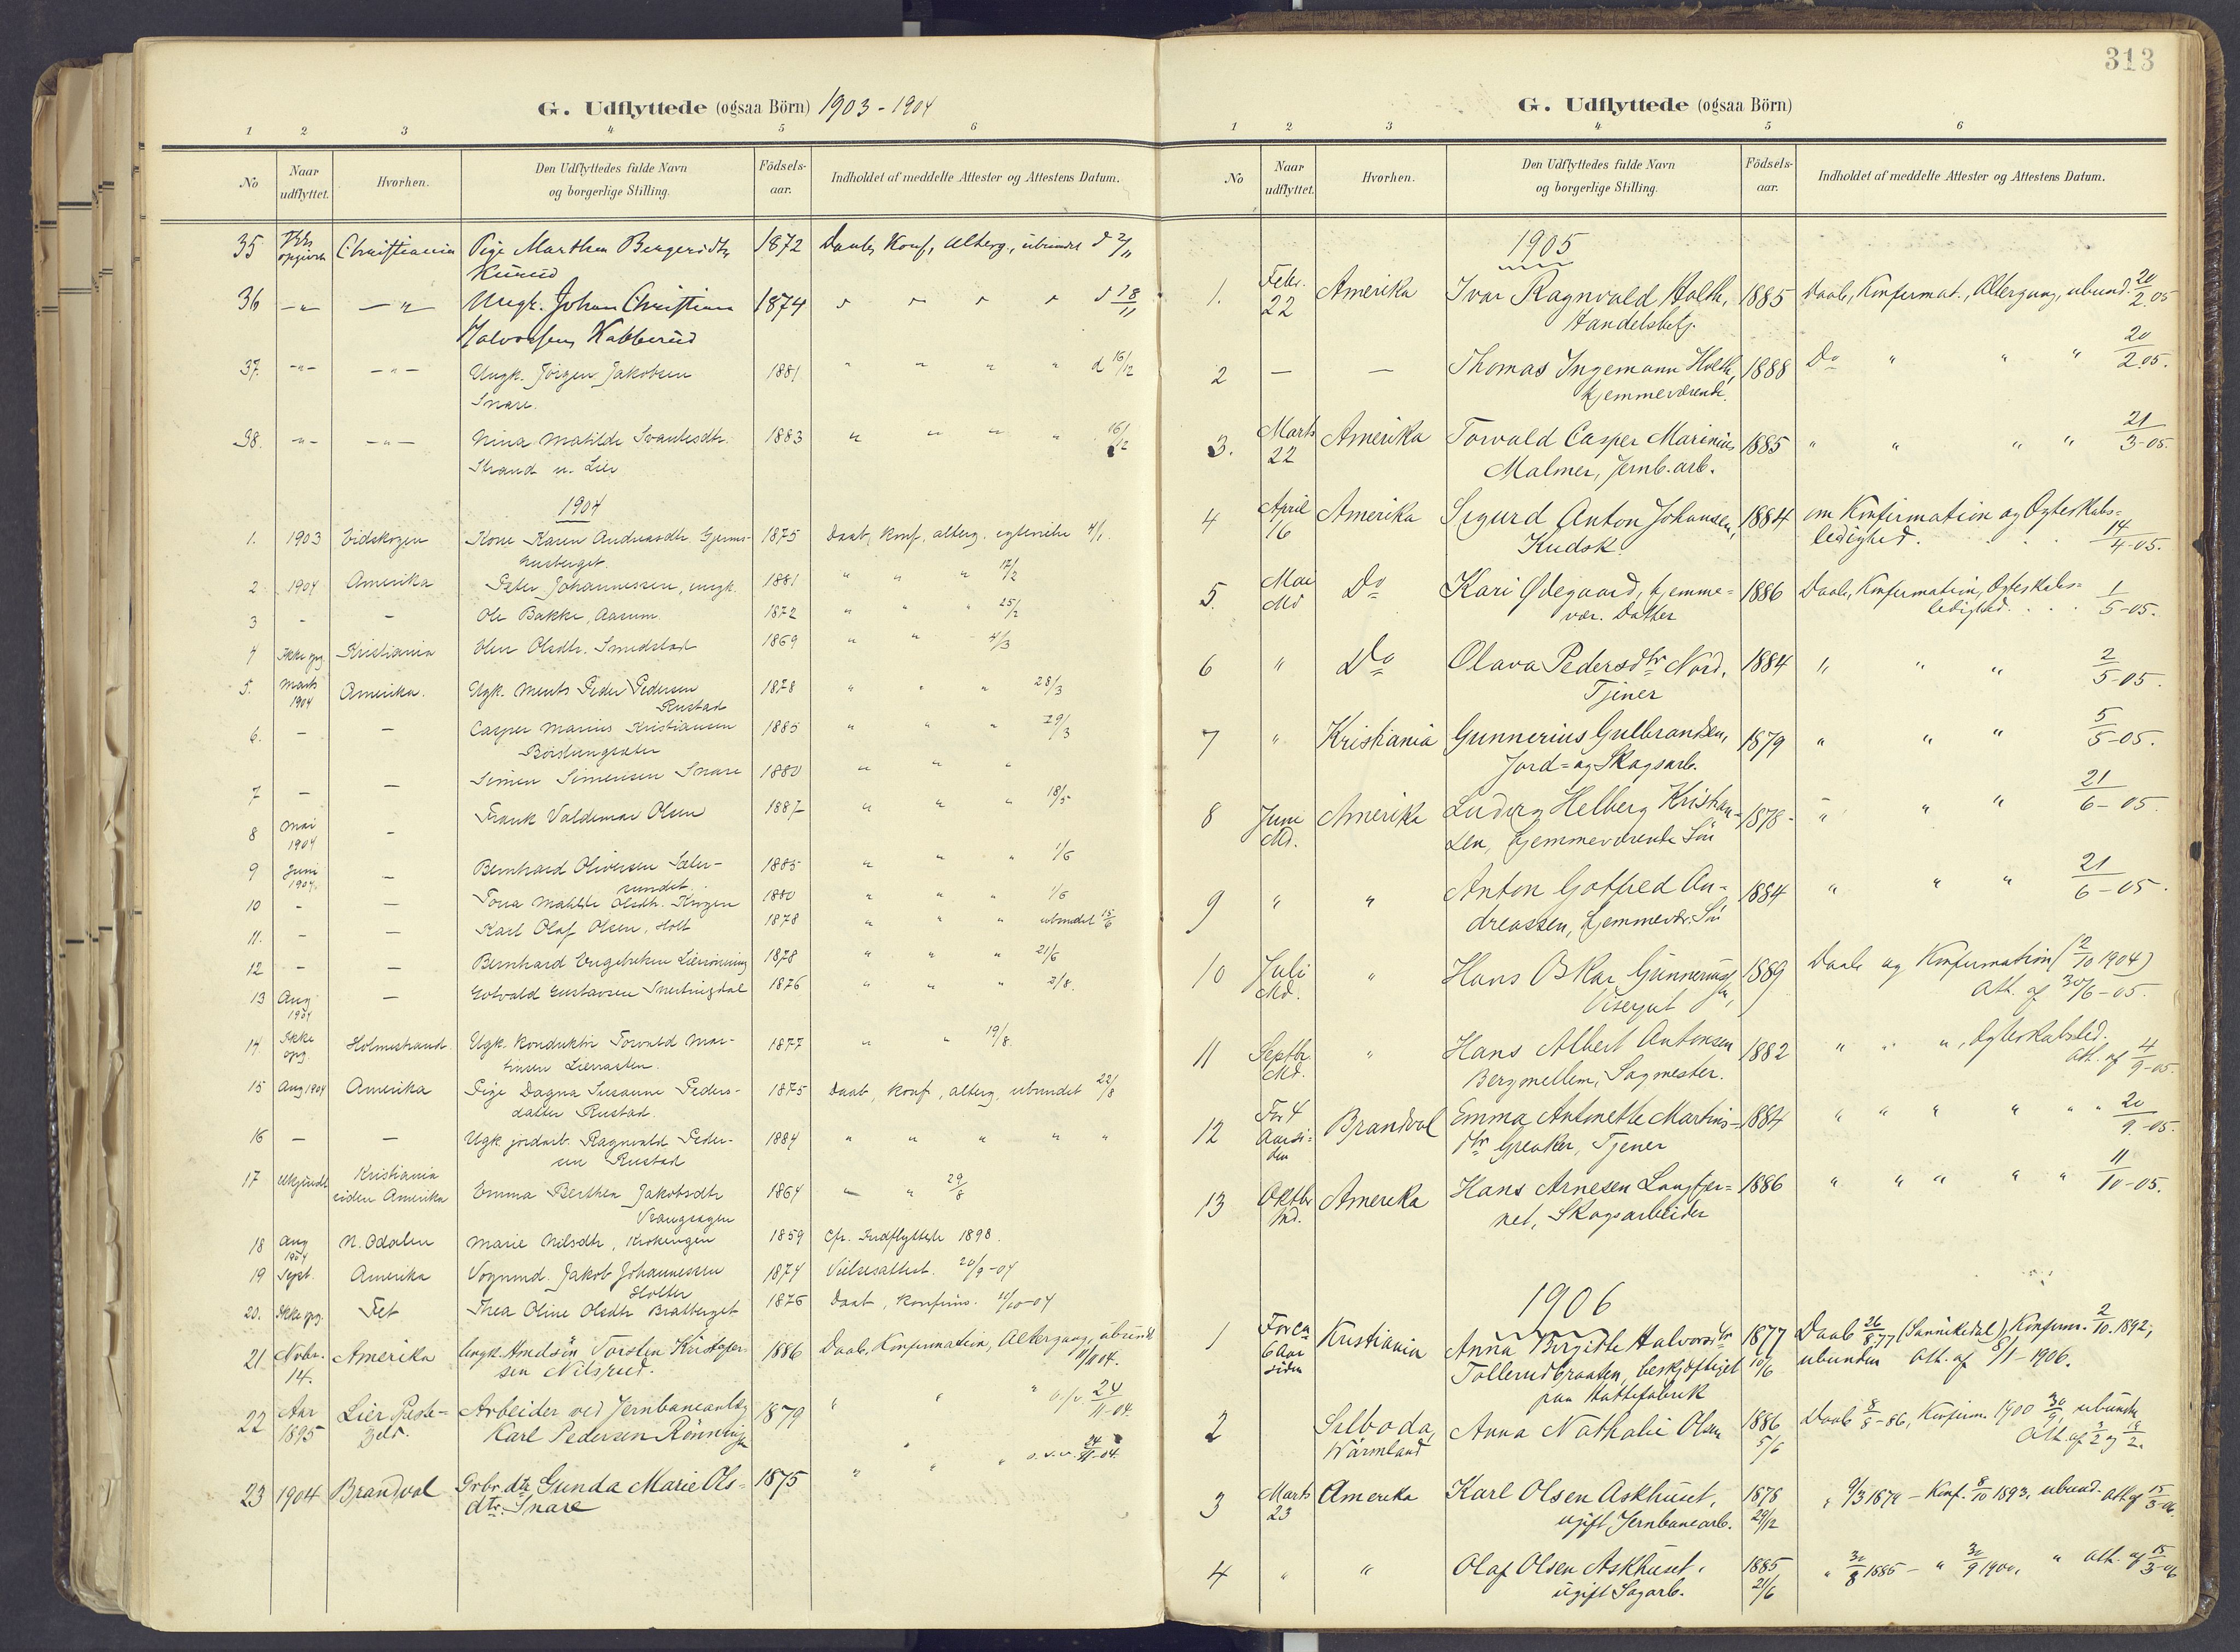 G. Udflyttede (ogsaa Börn) 1903-1904
1 2 3 4 5 6
No Naar udflyttet. Hvorhen. Den Udflyttedes fulde Navn og borgerlige Stilling. Födsels-aar. Indholdet af meddelte Attester og Attestens Datum.
35 Ikke opgivet Christiania Pige Marthea Bergersdtr 1872 Daab, Konf, alterg., ubundet d 2/11
36 -"- -"- Ungk. Johan Christian 1874 " " " " d 28/11
Halvorsen Kabberud
37. -"- -"- Ungk. Jörgen Jakobsen 1881 " " " " d 16/12
Snare.
38. -"- -"- Nina Matilde Svantesdtr. 1883 " " " " 16/12
Strand u. Lier
1904
1. 1903 Eidskogen Kone Karen Andreasdtr. 1875 Daab, konf, alterg. 4/1.
2. 1904 Amerika Peter Johannessen, ungk. 1881 " " " 17/2
3 - - Ole Bakke, Aarum. 1872 " " " 25/2
4 Ikke opg. Kristiania Olsdtr. Smedstad 1869 " " 4/3
5. Marts 1904 Amerika. Ugk. Ments Peder Pedersen 1878 " " " 28/3
Rustad
6. - - Casper Marius Kristiansen 1885 " " " 29/3
7 - - Simen Simensen Snare 1880 " " "
8 Mai 1904 - Frank Valdemar Olsen 1887 " " " 18/5
9 Juni 1904. - Bernhard Oliversen Sæter- 1885 " " " 1/6
sundet.
10 - - Tona Matilde Olsdtr. Krogen 1880 " " " 1/6
11. - - Karl Olaf Olsen, Holt 1878 " " " ubundet 15/6
12 - - Bernhard Engebretsen 1878 " " " 21/6
13 Aug 1904 - Gotvald Gustavsen 1876 " " " 2/8.
14. Ikke opg. Holmestrand. Ugk. Konduktör Torvald Mar- 1877 " " 19/8.
tinsen
15 Aug 1904 Amerika Pige Dagna Susanne Peders- 1875 Daab, konf, alterg, ubundet 22/8
datter Rustad.
16 - - Ugk. jordarb. Ragnvald Peder- 1884 " " " " "
sen Rustad
17 Ubkjendt Kristiania siden Amerika Emma Berthea Jakobsdtr 1864 - " 29/8
18 Aug 1904 N. Odalen Marie Nilsdtr, Krokengen 1859 Cfr. Indflyttede 1898.
19 Sept. Amerika Vognmd. Jakob Johannessen 1874 Vielsesattest. 20/9-04
Holter
20. Ikke opg. Fet Thea Oline Olsdtr Bratberget 1876 Daab, konfirm. 11/10-04
21. Novbr. 14. Amerika Ungk. Torsten Kristofer- 1886 Daab, Konfirmation, Altergang, ubundt
sen Nilsrud. 11/11 04.
22 Aar 1895 Lier Preste- geld. Arbeider ved Jernbaneanlæg 1879 " " " o.s.v. 24/11-04.
Karl Pedersen Rönningen
23 1904 Brandval Grbr. dtr Gunda Marie Ols- 1875 " " " o.s.v. 24/11-04.
dtr. Snare
313
G. Udflyttede (ogsaa Börn)
1 2 3 4 5 6
No Naar udflyttet. Hvorhen. Den Udflyttedes fulde Navn og borgerlige Stilling. Födsels-aar. Indholdet af meddelte Attester og Attestens Datum.
1905
1. Febr. 22 Amerika Ivar Ragnvald Holth, 1885 Daab, Konfirmat., Altergang, ubund. 20/2.05
Handelsbetj.
2 - - Thomas Ingemann Holth, 1888 Do " " " 20/2.05.
hjemmeværende.
3. Marts 22 Amerika Torvald Casper Marinius 1885 " " " " 21/3-05.
Malmer, Jernb. arb.
4 April 16 Amerika Sigurd Anton Johansen, 1884 om Konfirmation og Ægteskabs-
Kudsk. ledighed. 14/4-05.
5. Mai Md Do Kari Ødegaard, hjemme- 1886 Daab, Konfirmation, Ægteskabs-
vær. Datter ledighed. . . . 1/5-05.
6 " Do Olava Pedersdtr Nord, 1884 " " " 2/5-05.
Tjener
7 " Kristiania Gunnerius Gulbrandsen, 1879 " " " 5/5-05.
Jord- og Skogsarb.
8 Juni Md. Amerika Ludvig Helberg Kristian- 1878 " " " 21/6-05.
sen, hjemmeværende Sön
9 " " Anton Gotfred An- 1884 " " " 21/6-05.
dreassen, hjemmevær. Sön
10 Juli Md. " Hans Oskar Gunneriussen, 1889 Daab og Konfirmation (2/10 1904)
Visergut Att. af 30/6-05.
11 Septbr. Md. " Hans Albert Antonsen 1882 " " ", Ægteskabsled.
Bergmellem, Sagmester. Att. af 4/9-05.
12 For 4 Aar siden Brandval Emma Antonette Martins- 1884 " " " " " " 20/9.-05.
dtr Greaker, Tjener
13 Oktbr Md. Amerika Hans Arnesen Langtjer- 1886 " " " " " 11/10-05.
net, Skogsarbeider
1906
1 For ca 6 Aar siden Kristiania Anna Birgitte Halvorsdtr 1877 Daab 26/8.77 (Sannikedal) Konfirm. 2/10.1892;
Tollerudbraaten, beskjæftiget 10/6 ubunden Att. af 8/1-1906.
paa Hattefabrik
2 Silboda, Wärmland Anna Nathalie Olsen 1886 5/6 Daab 8/8-86, Konfirm. 1900 30/9, ubunden
Att. af 3/2 og 12/2.
3 Marts 23 Amerika Karl Olsen Askhuset, 1878 " 9/3 1879 - Konf. 8/10 1893, ubund. Att. af 15/3-06.
ugift Jernbanearb. 29/12
4 " " Olaf Olsen Askhuset, 1885 " 30/8 1885 - " 30/9 1900, " Att. af 15/3-06
ugift Sagarb. 21/6